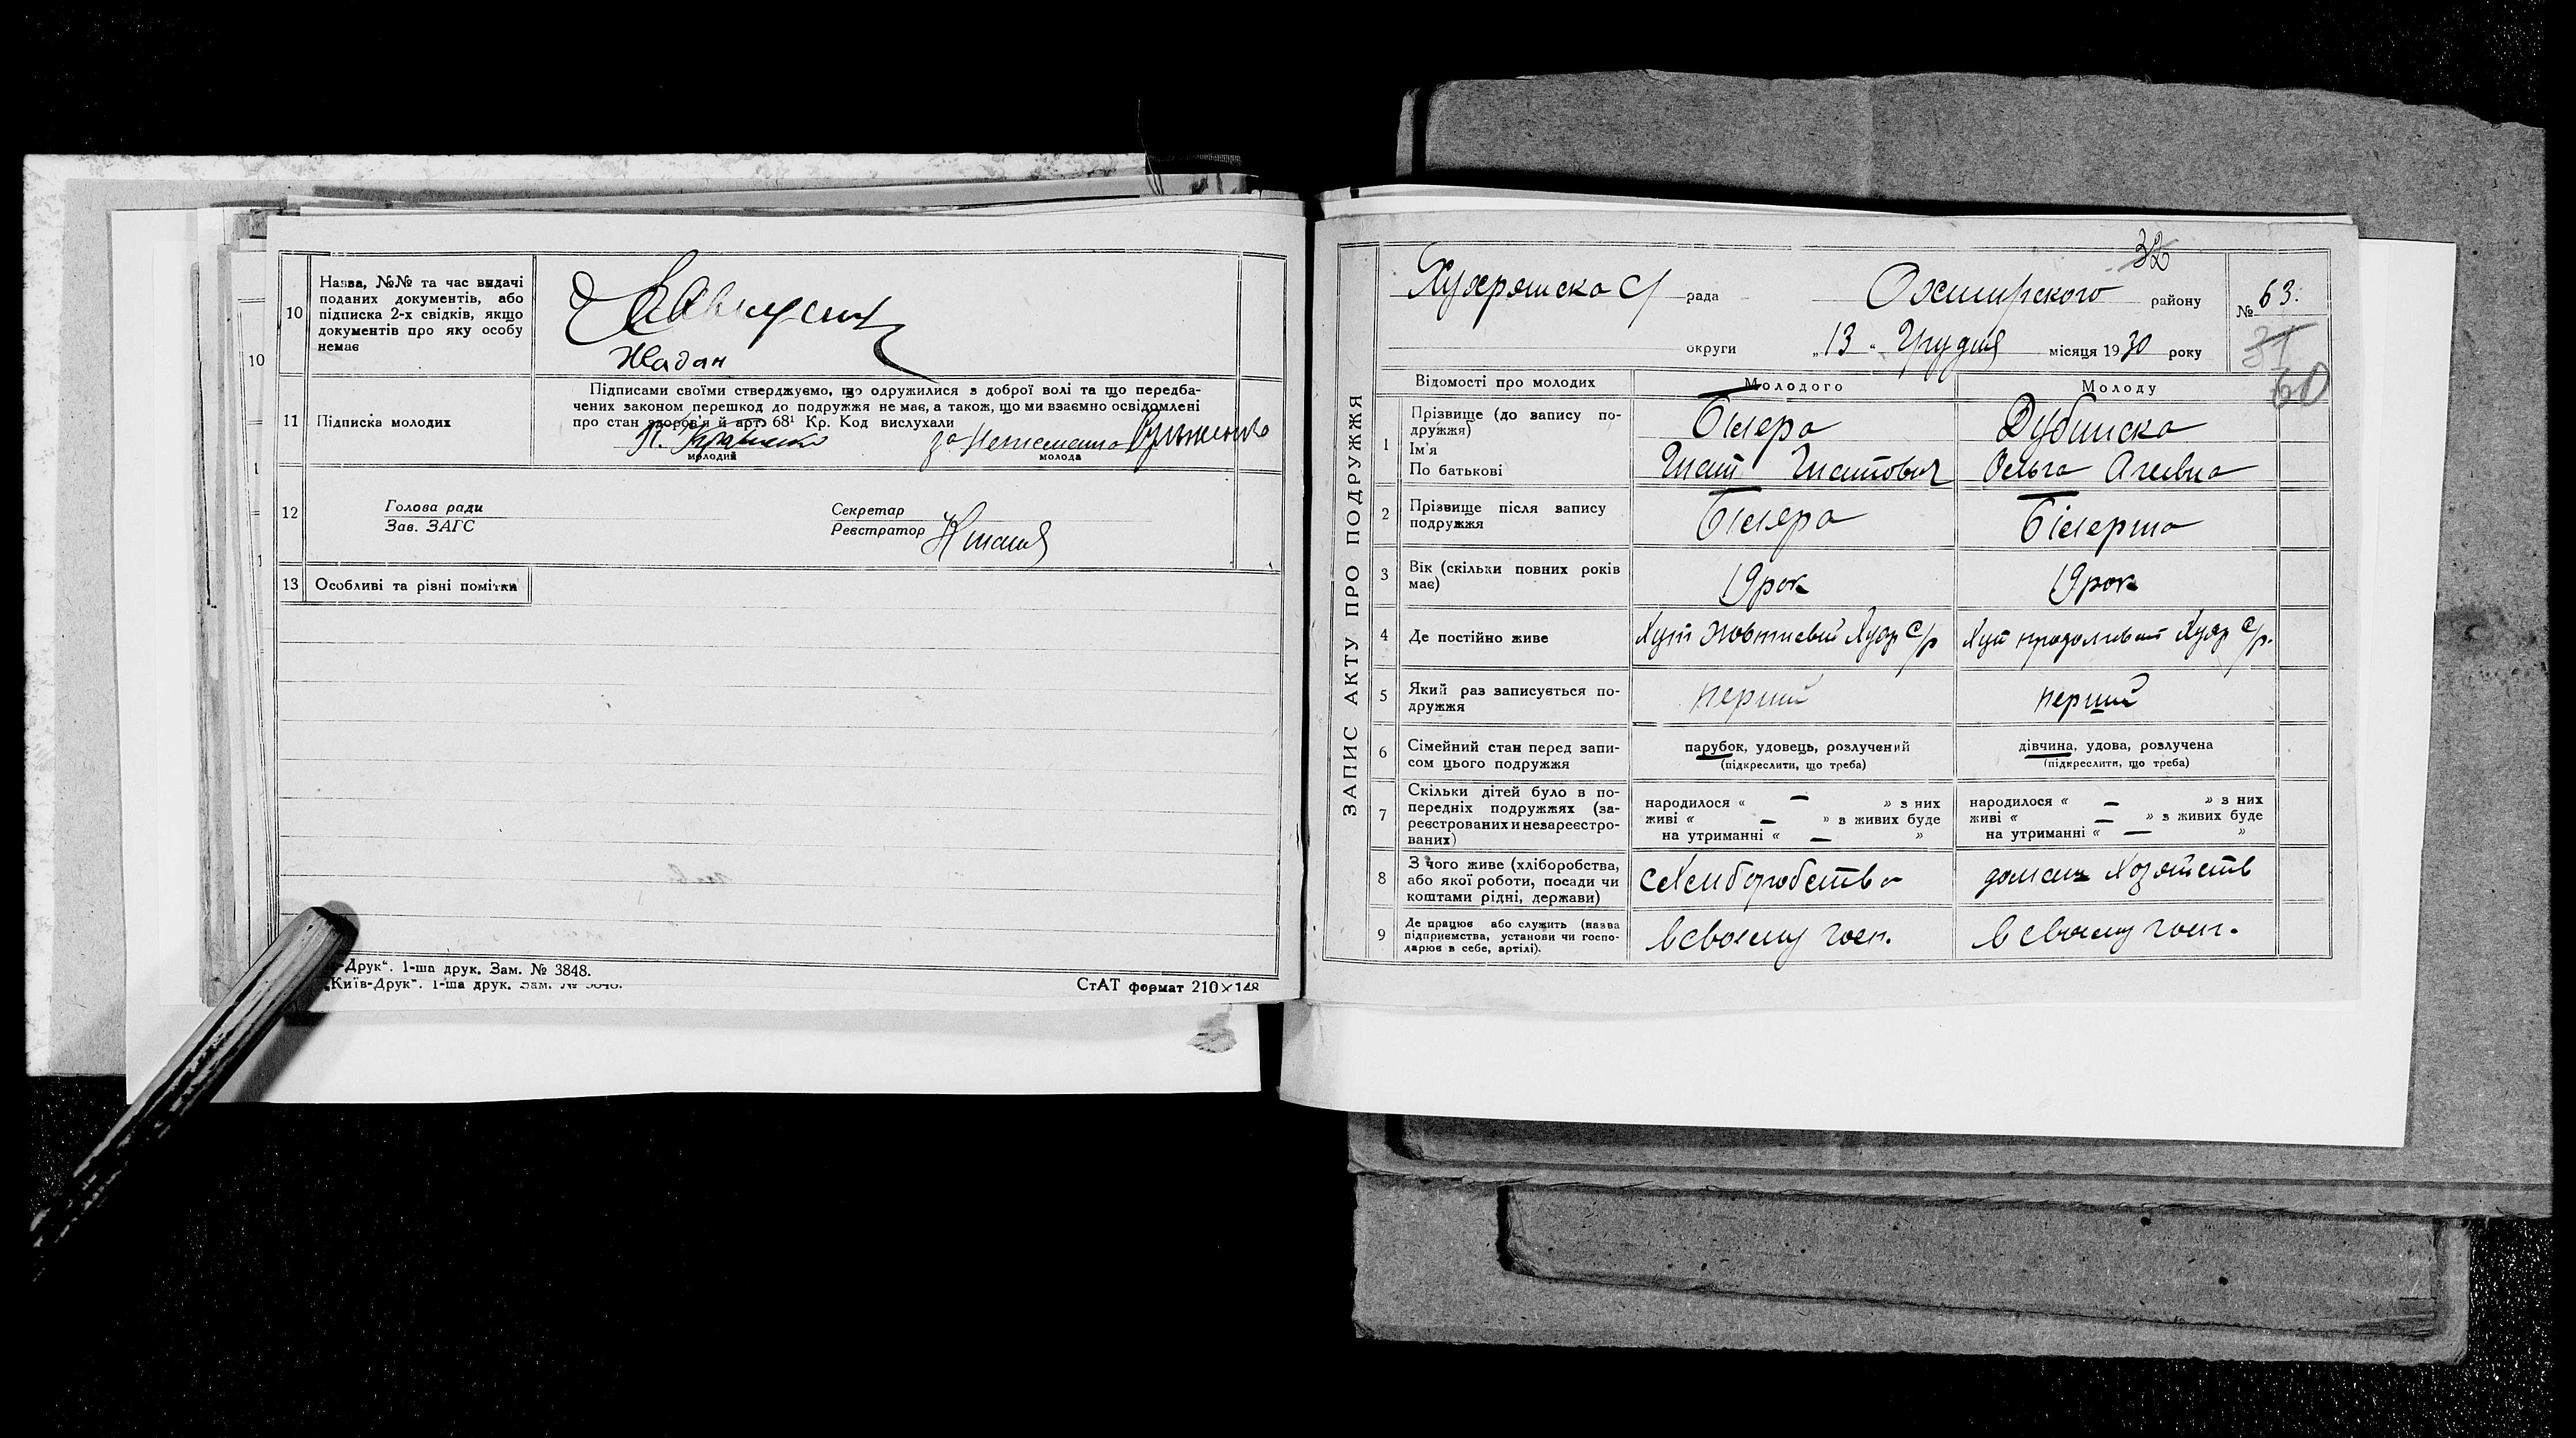 10
Назва, №№ та час видачі
поданих документів, або
підписка 2-х свідків, якщо
документів про яку особу
немає
Жадан
10
11
Підписка молодих
Підписами своїми стверджуємо, що одружилися з доброї волі та що передба-
чених законом перешкод до подружжя не має, а також, що ми взаємно освідомлені
про стан здоров'я й арт. 68¹ Кр. Код вислухали
молодий
молода
12
Голова ради
Зав. ЗАГС
Секретар
Реєстратор
13
Особливі та різні помітки
-Друк". 1-ша друк. Зам. № 3848.
„Київ-Друк". 1-ша друк. Зам. № 3848.
СтАТ формат 210×148
ЗАПИС АКТУ ПРО ПОДРУЖЖЯ
32
рада
района
району
№ 63.
31
60
округи
„13" Грудня місяця 1930 року
Відомості про молодих
Молодого
Молоду
1
Прізвище (до запису по-
дружжя)
Ім'я
По батькові
Білера
Дубинска
Гнат Гнатович
Ольга
2
Прізвище після запису
подружжя
Білера
3
Вік (скільки повних років
має)
19 рок
19 рок
4
Де постійно живе
Хут Жовтневий Хухр С/р
Хухр С/р.
5
Який раз записується по-
дружжя
перший
перший
6
Сімейний стан перед запи-
сом цього подружжя
парубок, удовець, розлучений
(підкреслити, що треба)
дівчина, удова, розлучена
(підкреслити, що треба)
7
Скільки дітей було в по-
передніх подружжях (за-
реєстрованих и незареєстро-
ваних)
народилося « — » з них
живі « — » з живих буде
на утриманні « — »
народилося « — » з них
живі « — » з живих буде
на утриманні « — »
8
З чого живе (хліборобства,
або якої роботи, посади чи
коштами рідні, держави)
9
Де працює або служить (назва
підприємства, установи чи госпо-
дарює в себе, артілі).
в своему госп.
в своему госп.